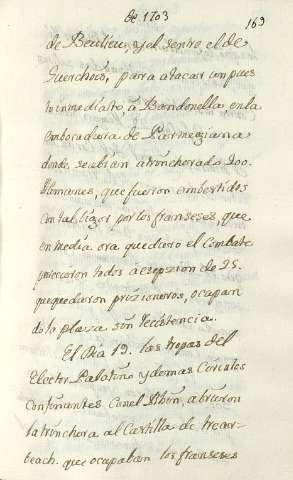 de 1703
169
de Beulieu, y al sentro, el de
Guerchois, para atacar un pues
to inmediato, â Bondonella, en la
embocadura de Parmeziana
donde se abian atroncherado 200.
Alemanes, que fueron embestidos
con tal bigor por los franseses, que
en media ora que duro el combate
perecieron todos a esepzion de 25.
que quedaron prizioneros, ocupan
do la plaza sin recistencia.
El Dia 19. las tropas del
Elector Palatino y demas Circulos
confinantes con el Rhin, abrieron
la tronchera al Castillo de trear-
beach. que ocupaban los franseses